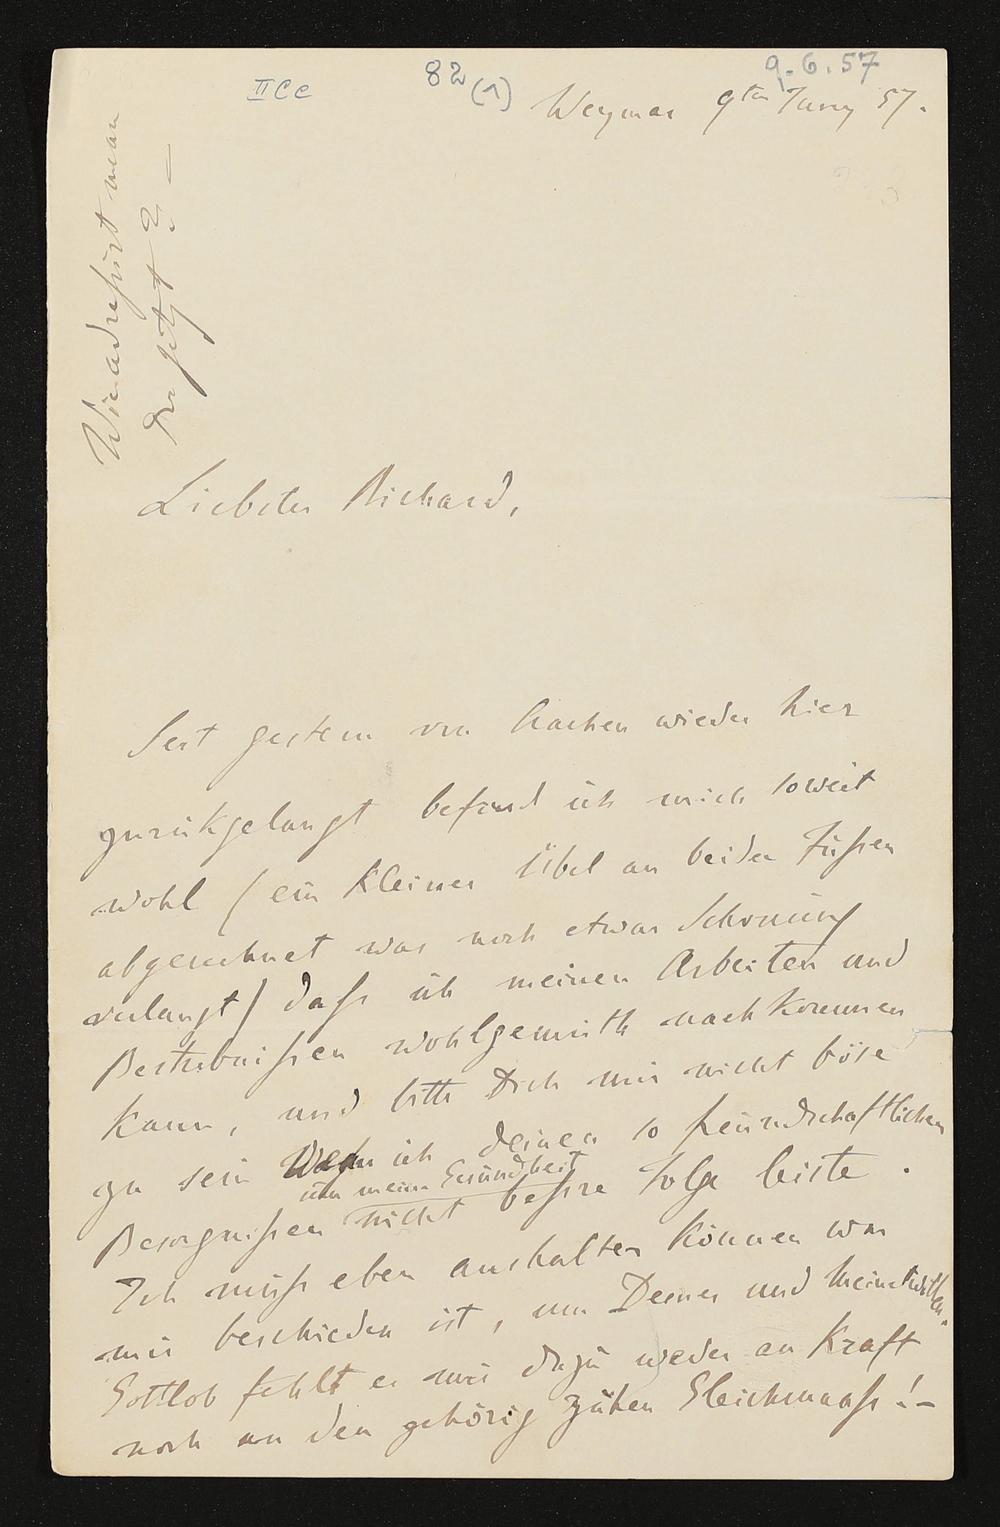 II C c
82 (1)
9.6.57
Weymar 9ten Juny 57.
Wie adressirt man
Dir jetzt? —
Liebster Richard,
Seit gestern von Aachen wieder hier
zurükgelangt befind ich mich soweit
wohl (ein kleines Übel an beiden Füssen
abgerechnet was noch etwas Schonung
verlangt) dass ich meinen Arbeiten und
wohlgemuth nachkommen
kann, und bitte Dich mir nicht böse
zu sein Wenn ich deinen so freundschaftlichen
um meine Gesundheit
Besorgnissen nicht bessre Folge leiste.
Ich muss eben aushalten können was
mir beschieden ist, um Deiner und Meinetwillen.
Gottlob fehlt es mir dazu weder an Kraft
noch an den gehörig zähen Gleichmaass! –